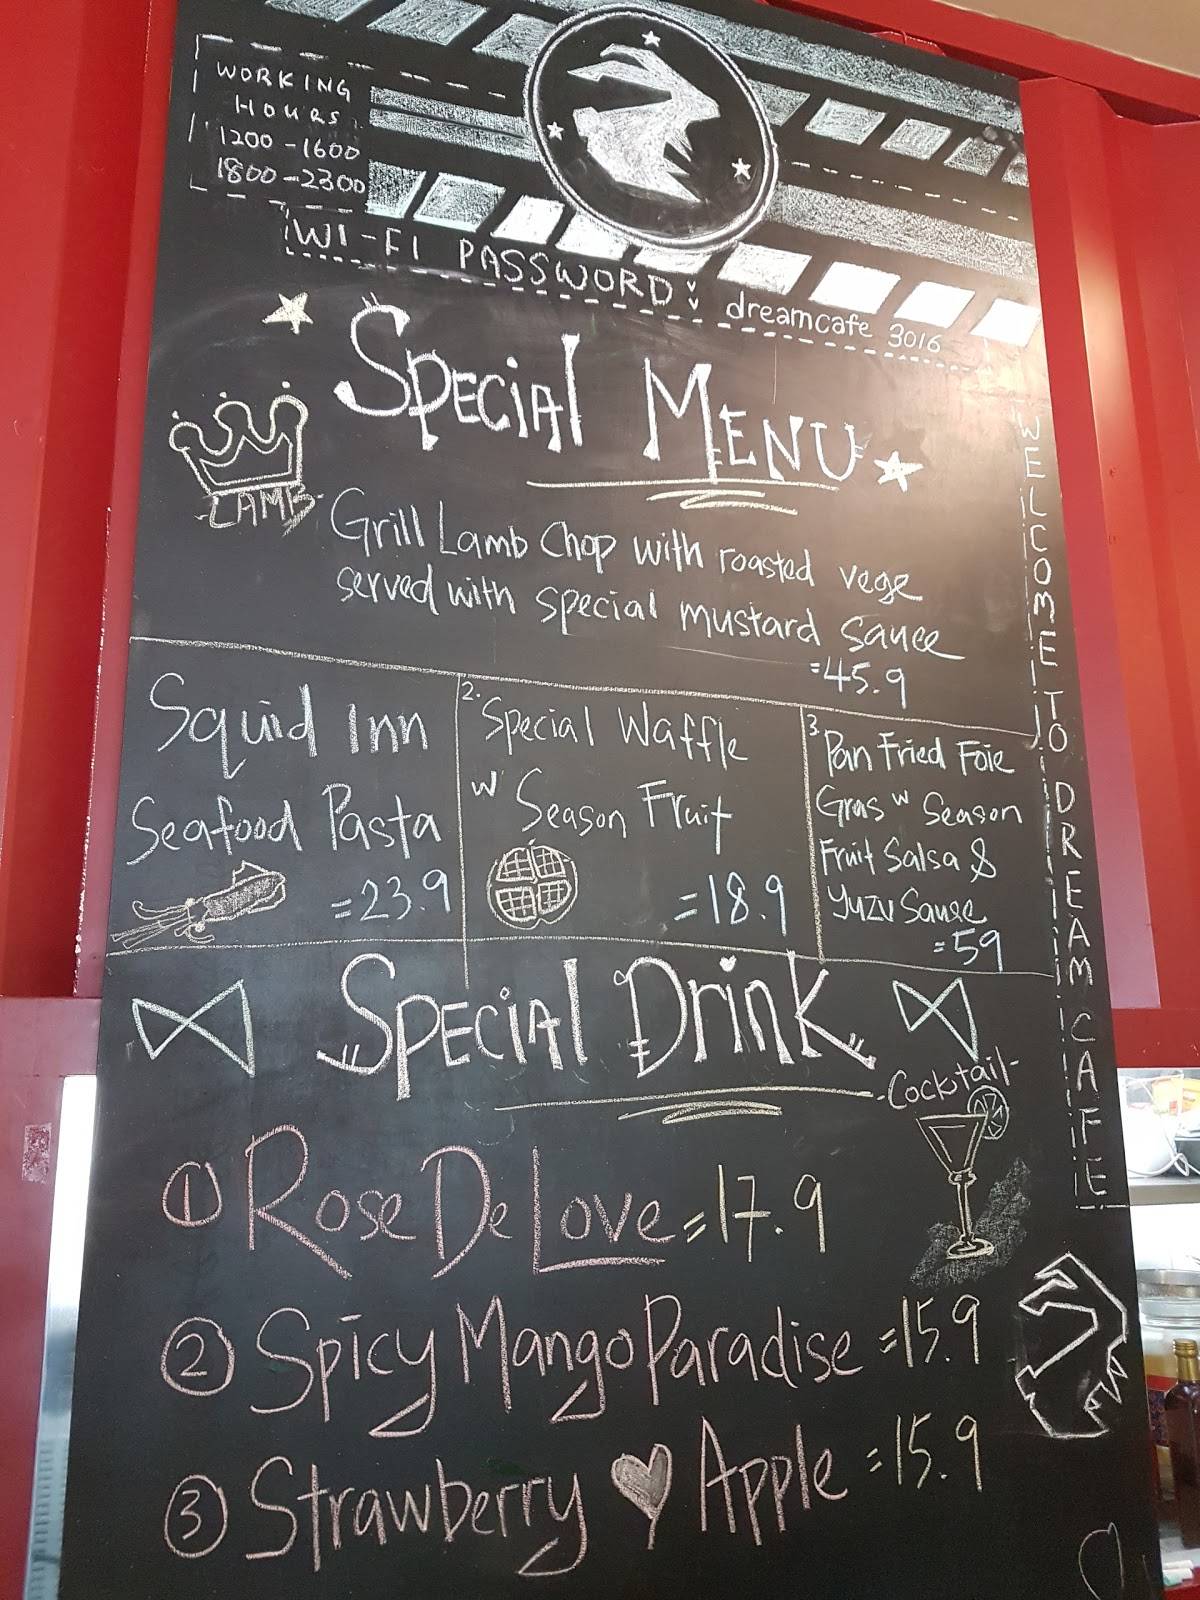 WORKING
HOURS
1200 - 1600
1800 - 2300
WI-FI PASSWORD: dreamcafe 3016
SPECIAL MENU
LAMB
Grill Lamb Chop with roasted vege
served with special mustard sauce
=45.9
Squid Inn
Seafood Pasta
=23.9
2. Special Waffle
w' Season Fruit
=18.9
3. Pan Fried Foie
Gras w Season
Fruit Salsa &
Yuzu Sause
=59
WELCOME TO DREAM CAFE
SPECIAL DRINK
-Cocktail-
① Rose De Love =17.9
② Spicy Mango Paradise =15.9
③ Strawberry Apple =15.9